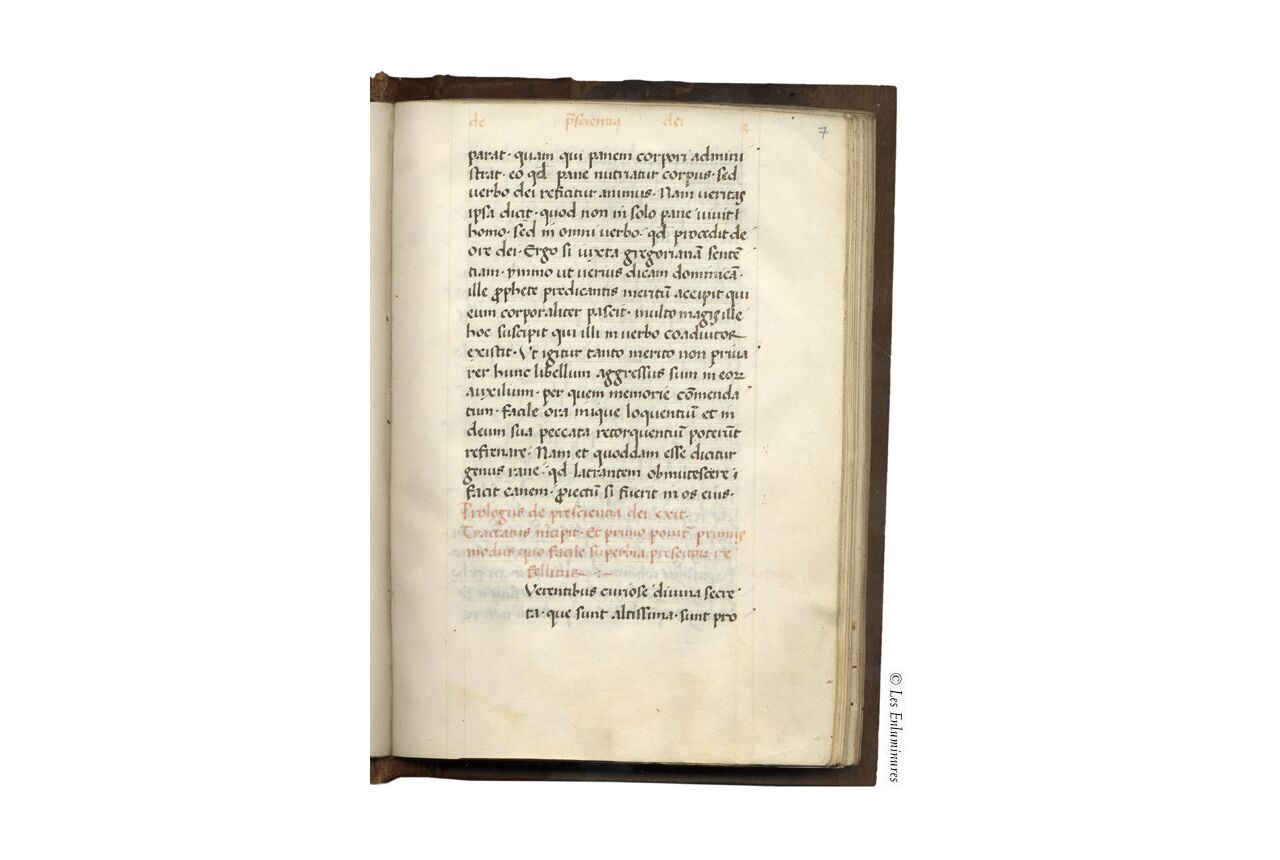 de p̄scientia dei 3
7
parat· quam qui panem corpori admini
strat· eo qd̄ pane nutriatur corpus· sed
verbo dei reficitur animus· Nam veritas
ipsa dicit· quod non in solo pane vivit
homo· sed in omni verbo· qd̄ procedit de
ore dei· Ergo si iuxta gregorianā sentē
tiam· ymmo ut verius dicam dominicā·
ille ꝓphete predicantis meritū accipit qui
eum corporaliter pascit· multo magis ille
hoc suscipit qui illi in verbo coadiutor
existit· Ut igitur tanto merito non priua
rer hunc libellum aggressus sum in eoꝝ
auxilium· per quem memorie cōmenda
tum· facile ora inique loquentiū et in
deum sua peccata retorquentiū poterūt
refrenare· Nam et quoddam esse dicitur
genus rane· qd̄ latrantem obmutescere
facit canem· ꝓiectū si fuerit in os eius·
Prologus de prescientia dei exit·
Tractatus incipit· Et primo ponit᷑ primus
modus quo facile superbia presentoꝝ re
fellitur
Verentibus curiose divina secre
ta· que sunt altissima· sunt pro
© Les Enluminures